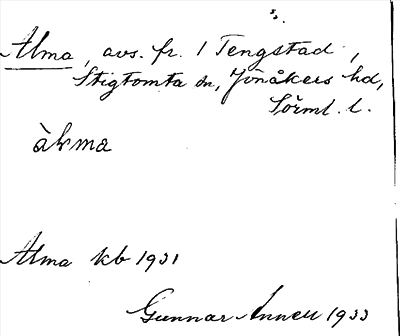 Alma, avs. fr. 1 Tengstad,
Stigtomta sn, Jönåkers hd,
Sörml. l.
àlma
Alma kb 1931
Gunnar Annell 1933